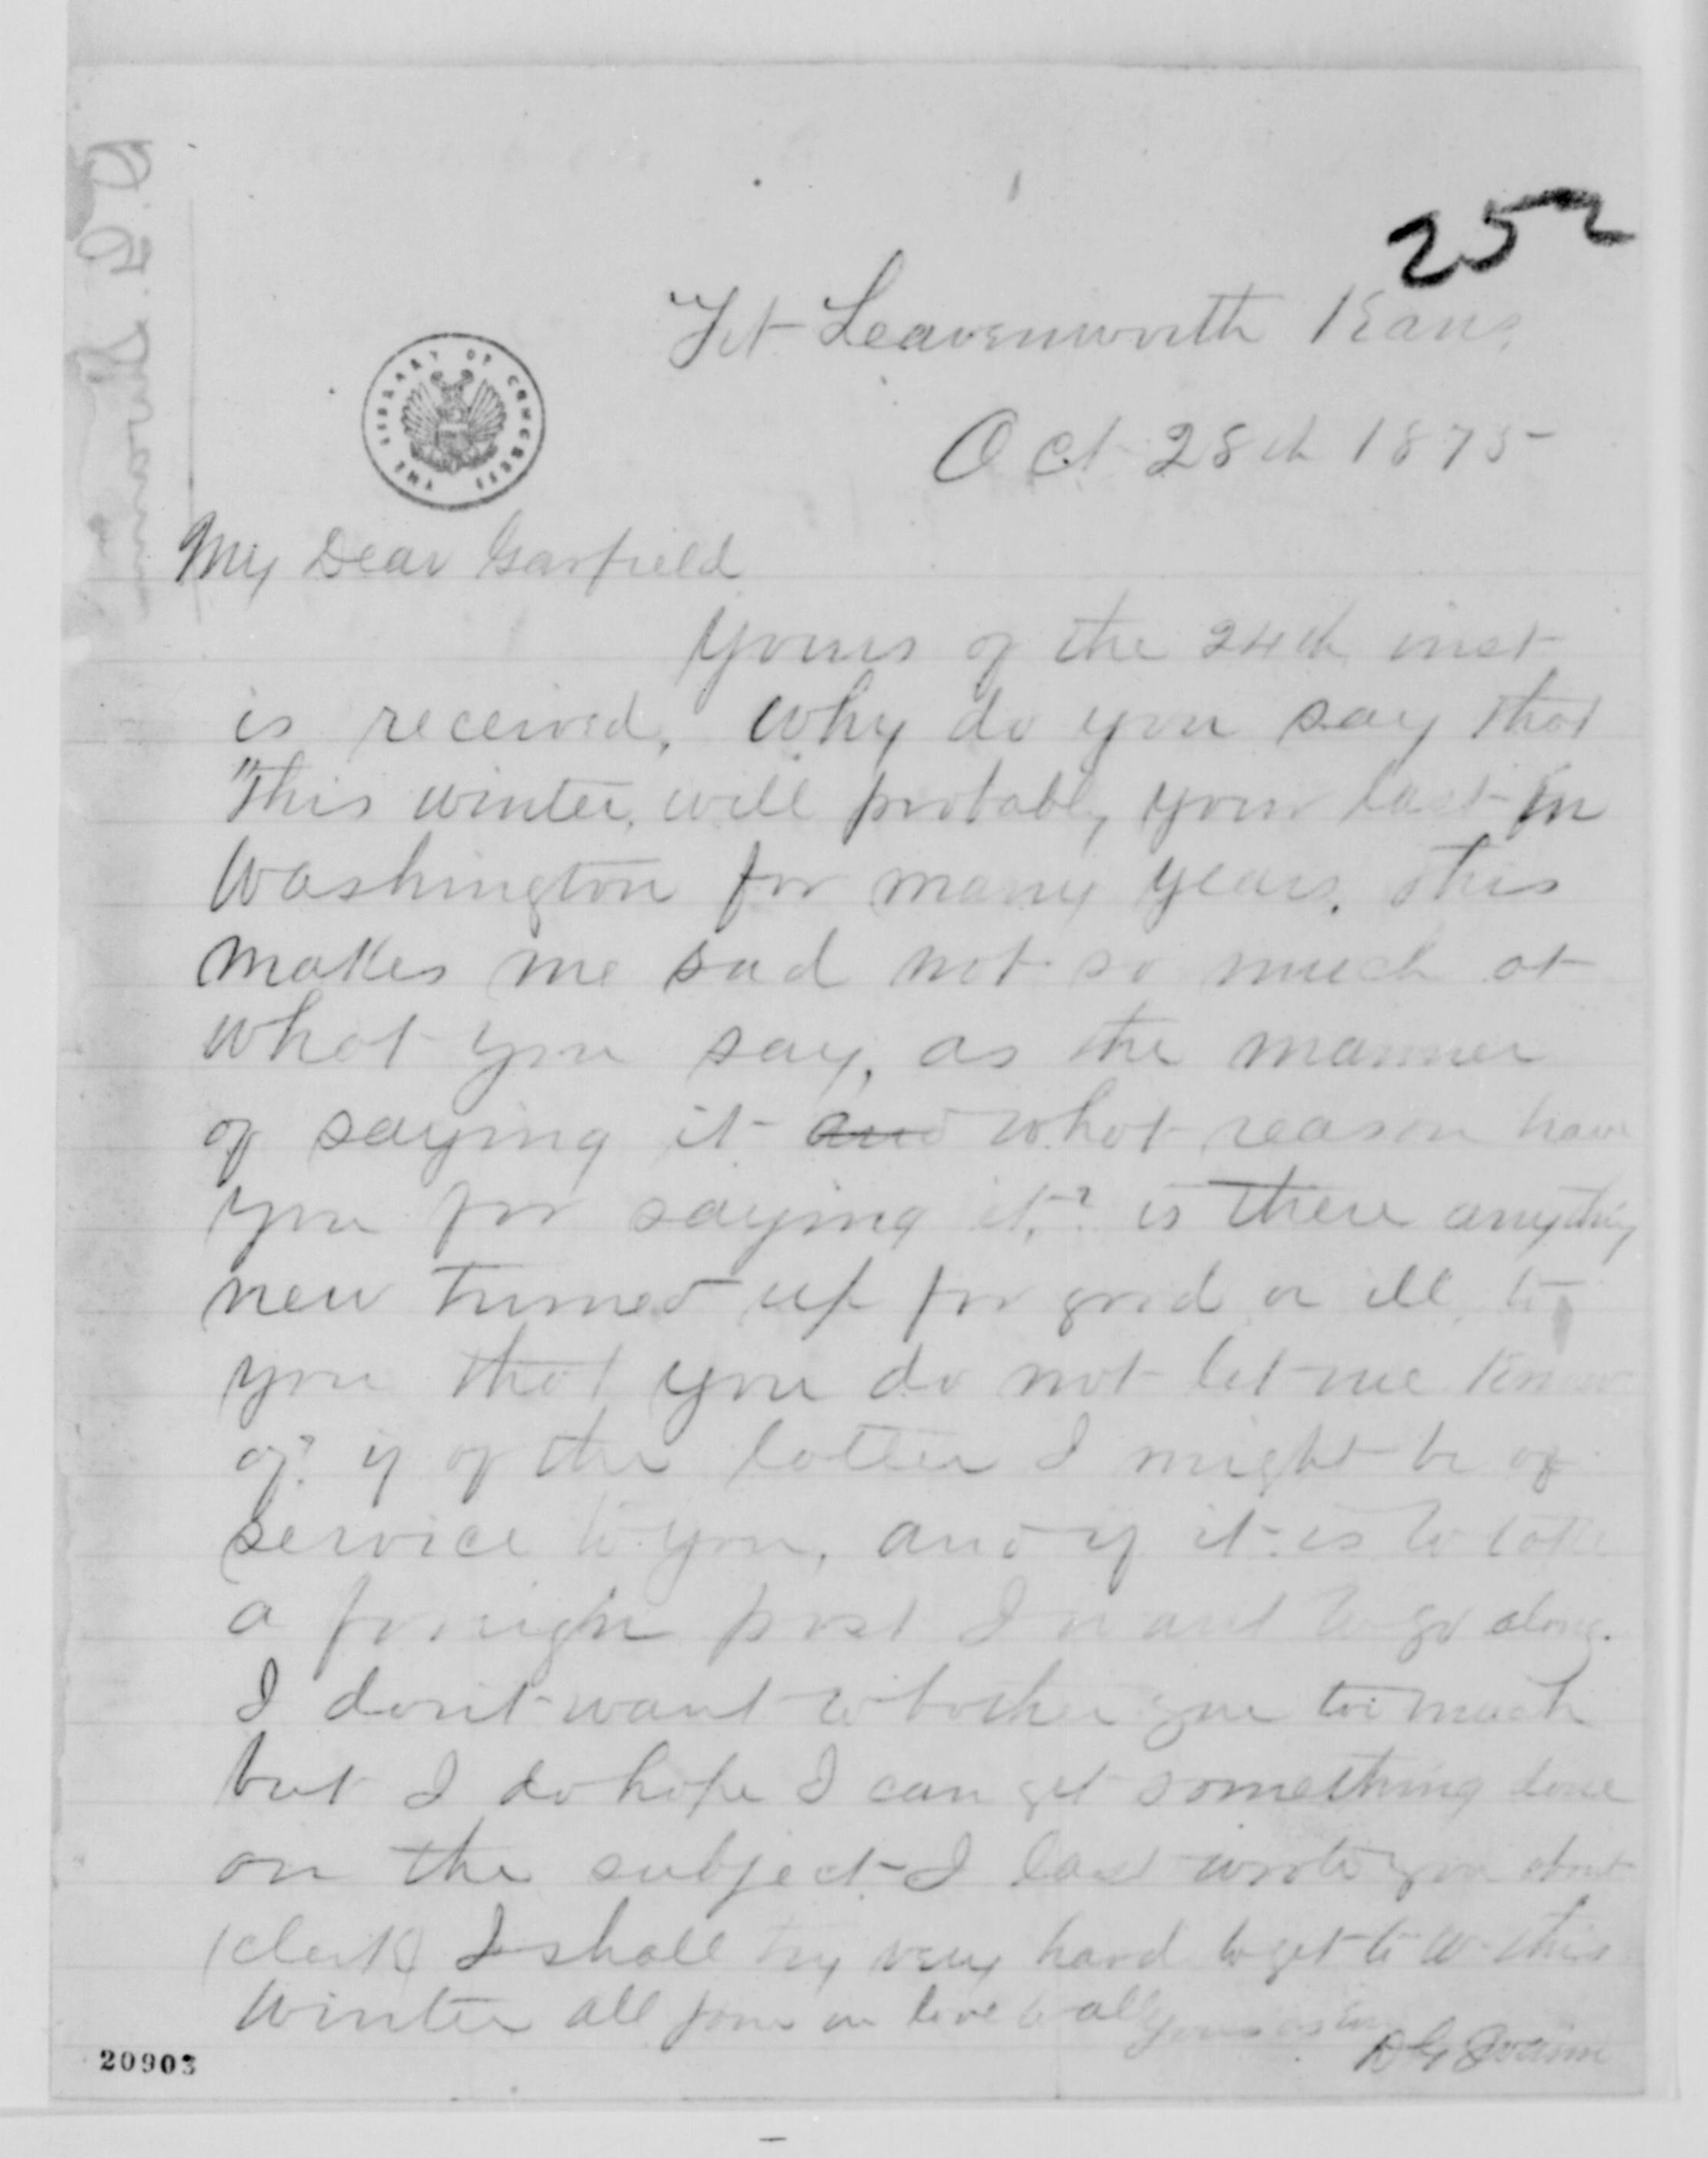 252
Ft Leavenworth Kans,
Oct 28th 1875
THE LIBRARY OF CONGRESS
My Dear Garfield
Yours of the 24th inst
is received, Why do you say that
"This winter, will probably your last in
Washington for many years. This
makes me sad not so much at
what you say, as the manner
of saying it and what reason have
you for saying it,? is there anything
new turned up for good or ill to
you that you do not let me know
of? if of the latter I might be of
service to you, and if it is to take
a foreign post I want to go along.
I don't want to bother you too much
but I do hope I can get something done
on the subject I last wrote you about
(clerk) I shall try very hard to get to W- this
Winter all join in love to all
Yours as Ever
D G Swaim
20903